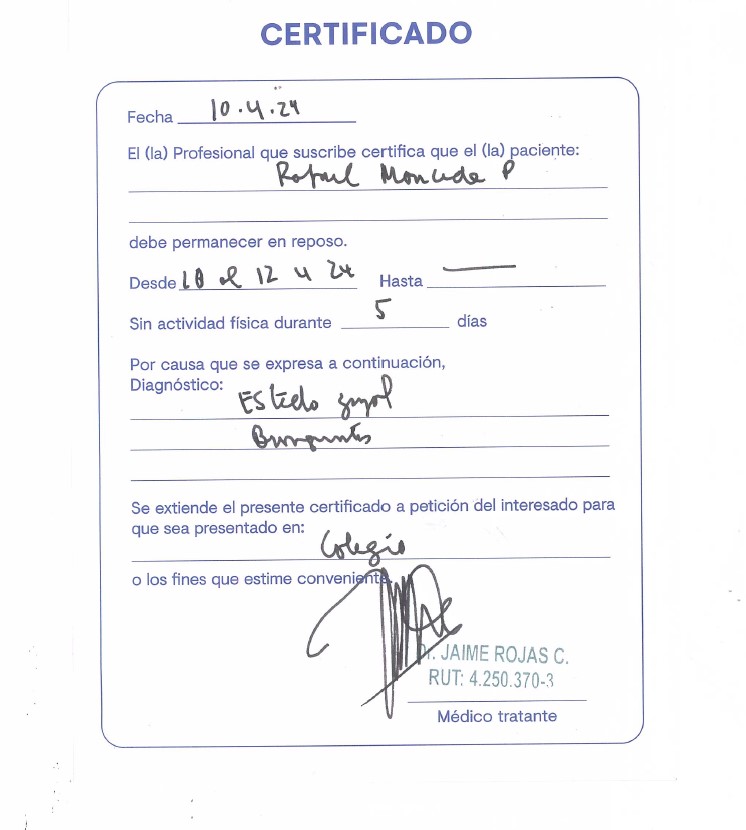 CERTIFICADO
Fecha 10.4.24
El (la) Profesional que suscribe certifica que el (la) paciente:
Rafael Moncada P
debe permanecer en reposo.
Desde 10 al 12 4 24 Hasta —
Sin actividad física durante 5 días
Por causa que se expresa a continuación,
Diagnóstico:
Estado gripal
Se extiende el presente certificado a petición del interesado para
que sea presentado en:
Colegio
o los fines que estime conveniente.
Dr. JAIME ROJAS C.
RUT: 4.250.370-3
Médico tratante